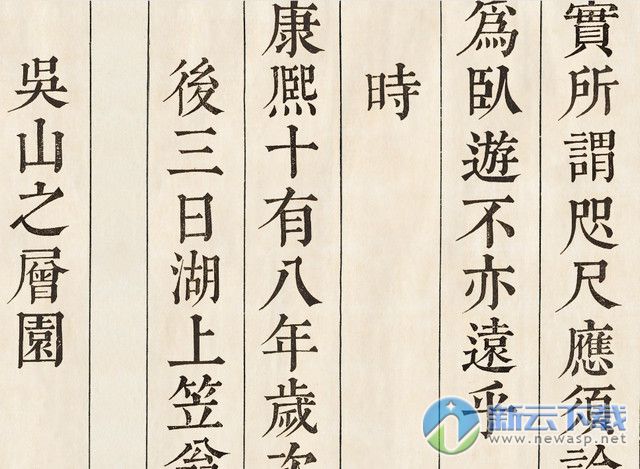 實所謂咫尺應須論
為臥遊不亦遠乎
時
康熙十有八年歲次
後三日湖上笠翁
吳山之層園
新云下载
www.newasp.net